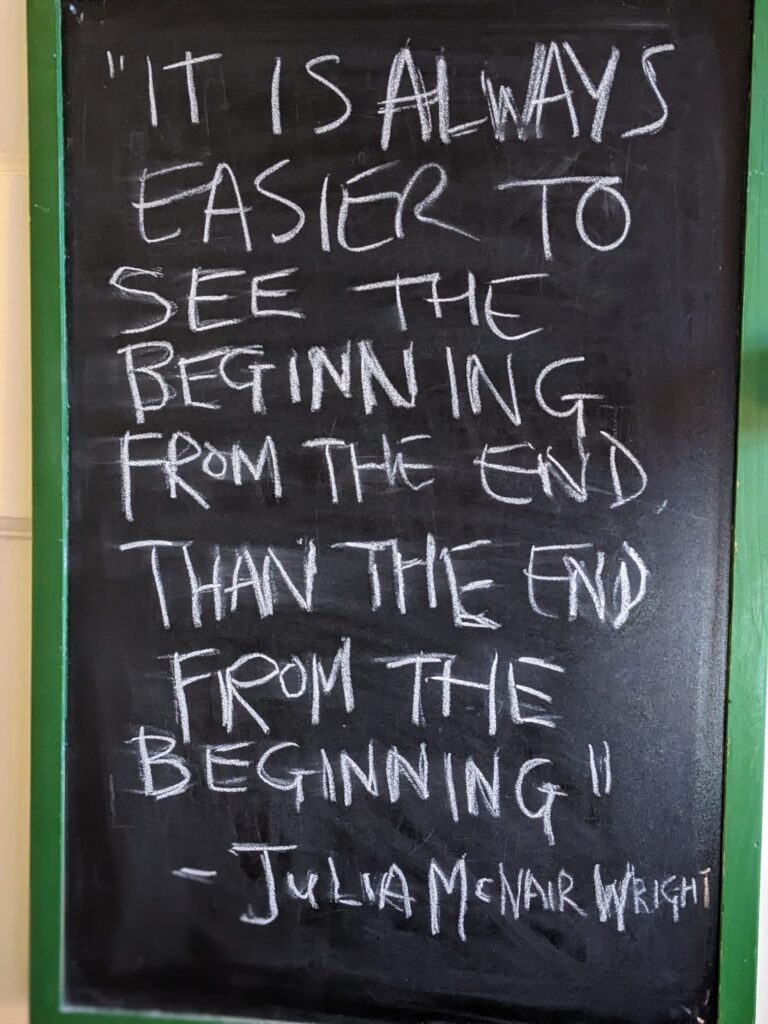 "IT IS ALWAYS
EASIER TO
SEE THE
BEGINNING
FROM THE END
THAN THE END
FROM THE
BEGINNING"
- JULIA McNAIR WRIGHT